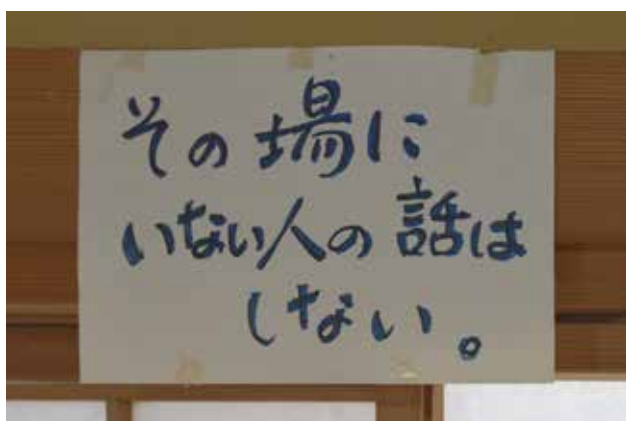 その場に
いない人の話は
しない。